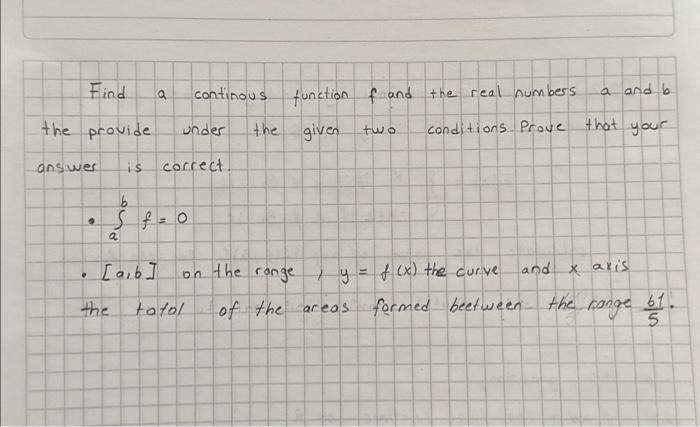 Find a continous function f and the real numbers a and b
the provide under the given two conditions. Prove that your
answer is correct.
• ∫_a^b f = 0
• [a,b] on the range, y = f(x) the curve and x axis
the total of the areas formed beetween the range 61/5.